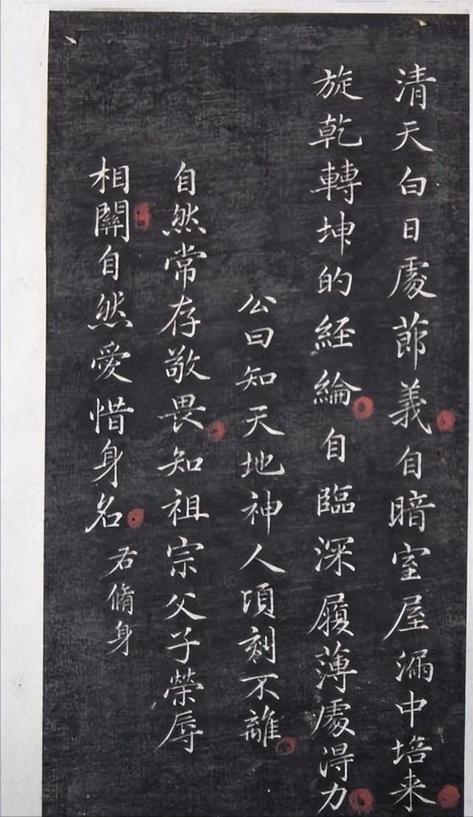 清天白日處節義自暗室屋漏中培来
旋乾轉坤的経綸自臨深履薄處淂力
公曰知天地神人項刻不離
自然常存敬畏知祖宗父子榮辱
相關自然愛惜身名
右脩身